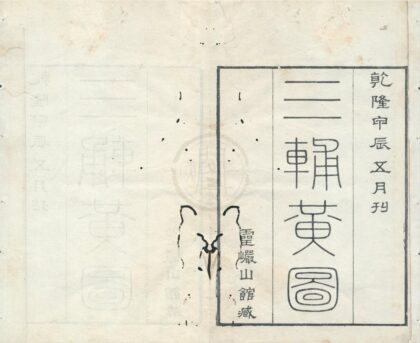 乾隆甲辰五月刊
三輔黃圖
靈巖山館藏